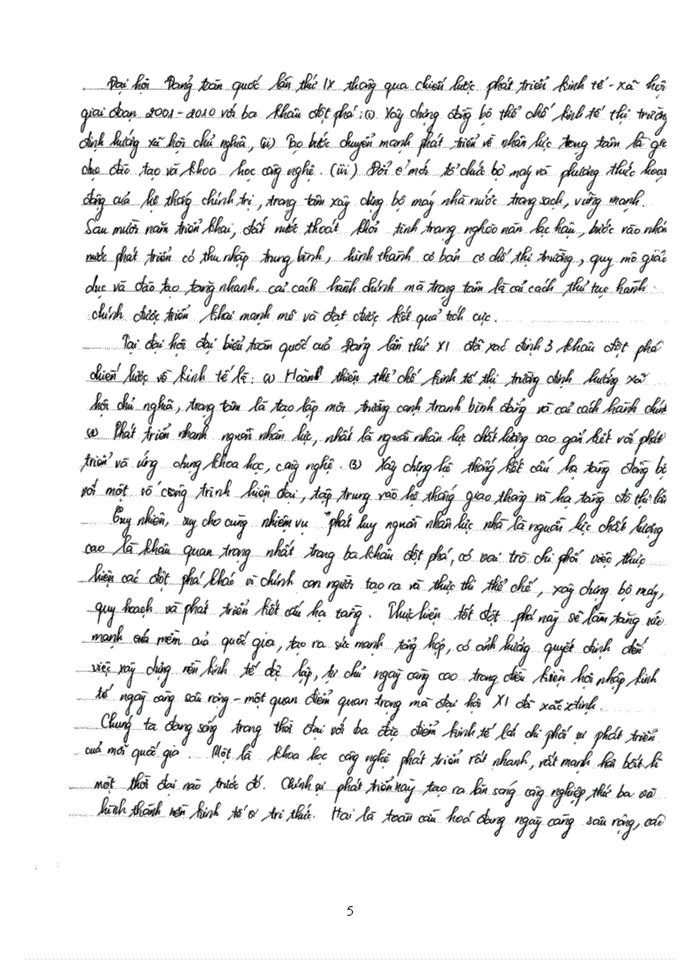 Đại hội Đảng toàn quốc lần thứ IX thông qua chiến lược phát triển kinh tế - xã hội
giai đoạn 2001-2010 với ba khâu đột phá: (i) Xây dựng đồng bộ thể chế kinh tế thị trường
định hướng xã hội chủ nghĩa, (ii) Tạo bước chuyển mạnh phát triển về nhân lực trọng tâm là giáo
dục đào tạo và khoa học công nghệ. (iii) Đổi mới tổ chức bộ máy và phương thức hoạt
động của hệ thống chính trị, trọng tâm xây dựng bộ máy nhà nước trong sạch, vững mạnh.
Sau mười năm triển khai, đất nước thoát khỏi tình trạng nghèo nàn lạc hậu, bước vào nhóm
nước phát triển có thu nhập trung bình, hình thành cơ bản cơ chế thị trường, quy mô giáo
dục và đào tạo tăng nhanh. cải cách hành chính mà trọng tâm là cải cách thủ tục hành
chính được triển khai mạnh mẽ và đạt được kết quả tích cực.
Tại đại hội đại biểu toàn quốc của Đảng lần thứ XI đã xác định 3 khâu đột phá
chiến lược về kinh tế là: (1) Hoàn thiện thể chế kinh tế thị trường định hướng xã
hội chủ nghĩa, trọng tâm là tạo lập môi trường cạnh tranh bình đẳng và cải cách hành chính
Phát triển nhanh nguồn nhân lực, nhất là nguồn nhân lực chất lượng cao gắn kết với phát
triển và ứng dụng khoa học, công nghệ. (3) Xây dựng hệ thống kết cấu hạ tầng đồng bộ
với một số công trình hiện đại, tập trung vào hệ thống giao thông và hạ tầng đô thị lớn
Tuy nhiên, suy cho cùng nhiệm vụ "phát huy nguồn nhân lực nhất là nguồn lực chất lượng
cao là khâu quan trọng nhất trong ba khâu đột phá, có vai trò chi phối việc thực
hiện các đột phá khác vì chính con người tạo ra và thực thi thể chế, xây dựng bộ máy,
quy hoạch và phát triển kết cấu hạ tầng. Thực hiện tốt đột phá này sẽ làm tăng sức
mạnh mềm của quốc gia, tạo ra sức mạnh tổng hợp, có ảnh hưởng quyết định đến
việc xây dựng nền kinh tế độc lập, tự chủ ngày càng cao trong điều kiện hội nhập kinh
tế ngày càng sâu rộng - một quan điểm quan trọng mà đại hội XI đã xác định.
Chúng ta đang sống trong thời đại với ba đặc điểm kinh tế lớn chi phối sự phát triển
của mỗi quốc gia. Một là khoa học công nghệ phát triển rất nhanh, rất mạnh hơn bất kì
một thời đại nào trước đó. Chính sự phát triển này tạo ra làn sóng công nghiệp thứ ba và
hình thành nền kinh tế tri thức. Hai là toàn cầu hoá đang ngày càng sâu rộng, các
5